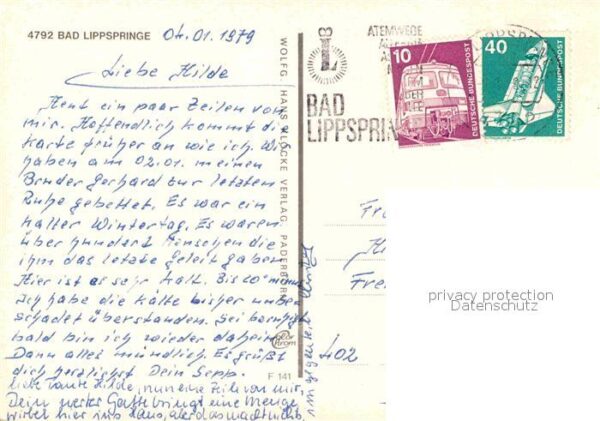 4792 BAD LIPPSPRINGE 04.01.1979
Liebe Hilde
Heut ein paar Zeilen von
mir. Hoffendlich kommt die
Karte früher an wie ich. Wir
haben am 02.01. meinen
Bruder Gerhard zur letzten
Ruhe gebettet. Es war ein
kalter Wintertag. Es waren
über hundert Menschen die
ihm das letzte Geleit gaben
Hier ist es sehr kalt. Bis 20°
Ich habe die Kälte bisher unbe-
schadet überstanden. Sei beruhigt
bald bin ich wieder daheim
Dann alles mündlich. Es grüßt
dich herzlichst Dein Sepp.
liebe Tante Hilde, nun eine Zeile von mir,
Dein werter Gatte bringt eine Menge
Wirbel hier ins Haus, aber das macht nichts.
im Gegenteil
WOLFG. HANS KLOCKE VERLAG, PADERBORN
F 141
ATEMWEGE
BAD
LIPPSPRINGE
10
DEUTSCHE BUNDESPOST
40
DEUTSCHE BUNDESPOST
Fr
402
privacy protection
Datenschutz